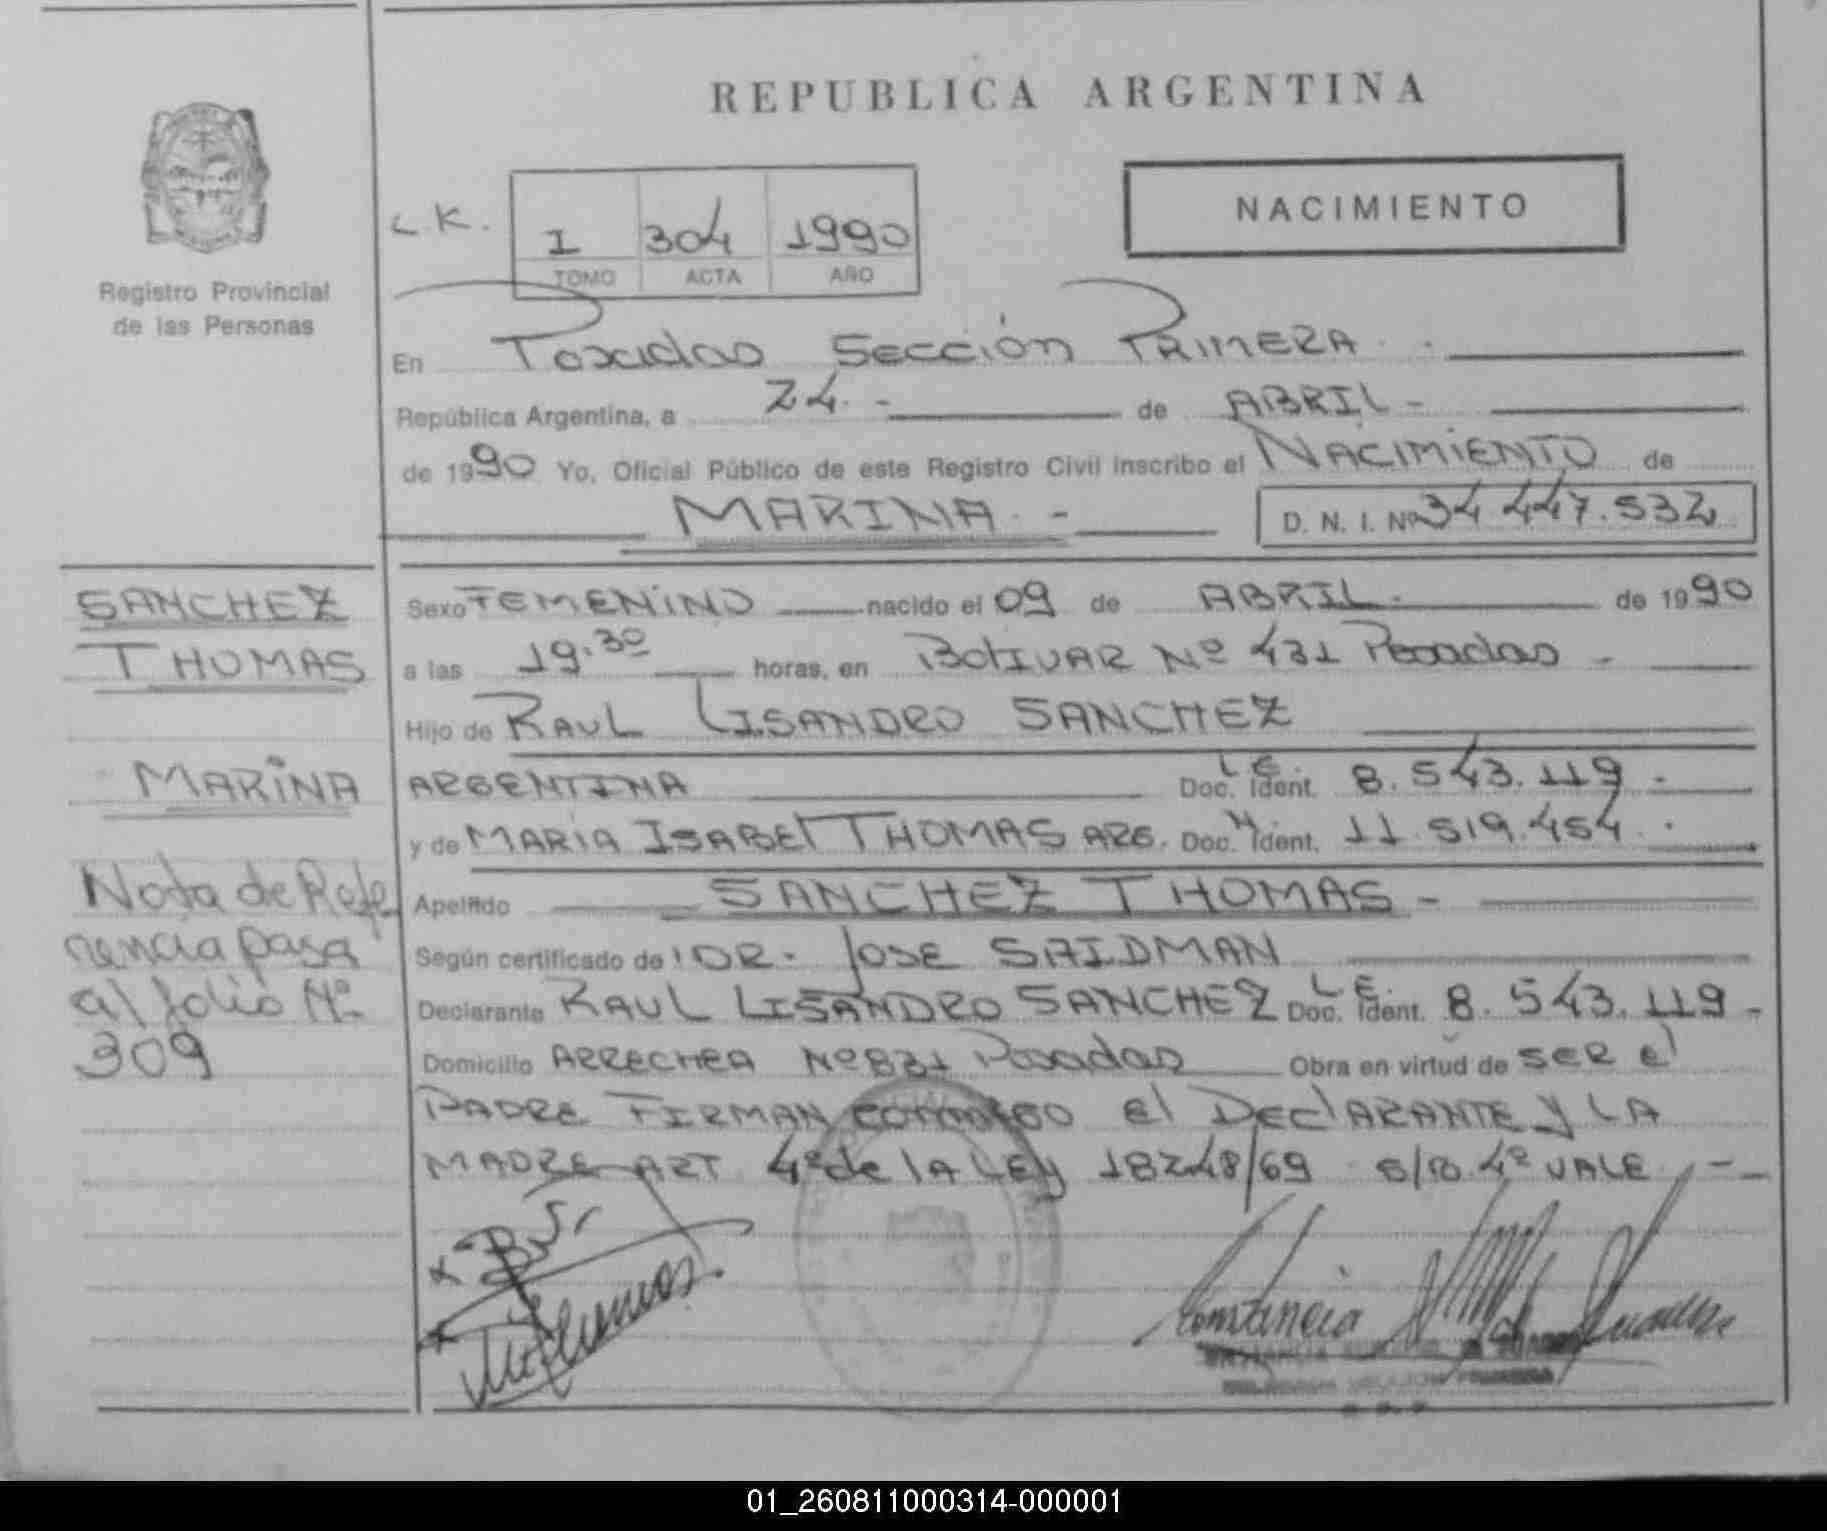 REPUBLICA ARGENTINA
Registro Provincial
de las Personas
L.K. I 304 1990
TOMO ACTA AÑO
NACIMIENTO
En Posadas Sección PRIMERA
República Argentina, a 24.- de ABRIL-
de 1990 Yo, Oficial Público de este Registro Civil inscribo el NACIMIENTO de
MARINA.-
D. N. I. Nº 34 447.532
SANCHEZ
THOMAS
MARINA
Nota de Refe
rencia pasa
al folio Nº
309
Sexo FEMENINO nacido el 09 de ABRIL. de 1990
a las 19.30 horas, en BOLIVAR Nº 431 Posadas -
Hijo de RAUL LISANDRO SANCHEZ
ARGENTINA Doc. Ident. L.E. 8.543.119-
y de MARIA ISABEL THOMAS ARG. Doc. Ident. 11.519.454.
Apellido SANCHEZ THOMAS-
Según certificado de DR. JOSE SAIDMAN
Declarante RAUL LISANDRO SANCHEZ Doc. Ident. L.E. 8.543.119-
Domicilio ARRECHEA Nº 831 Posadas Obra en virtud de SER el
PADRE FIRMAN conmigo el DEClARANTE y LA
MADRE ART 4º de lA LEy 18248/69 S/R 4º VALE.--
Constancia
01_260811000314-000001